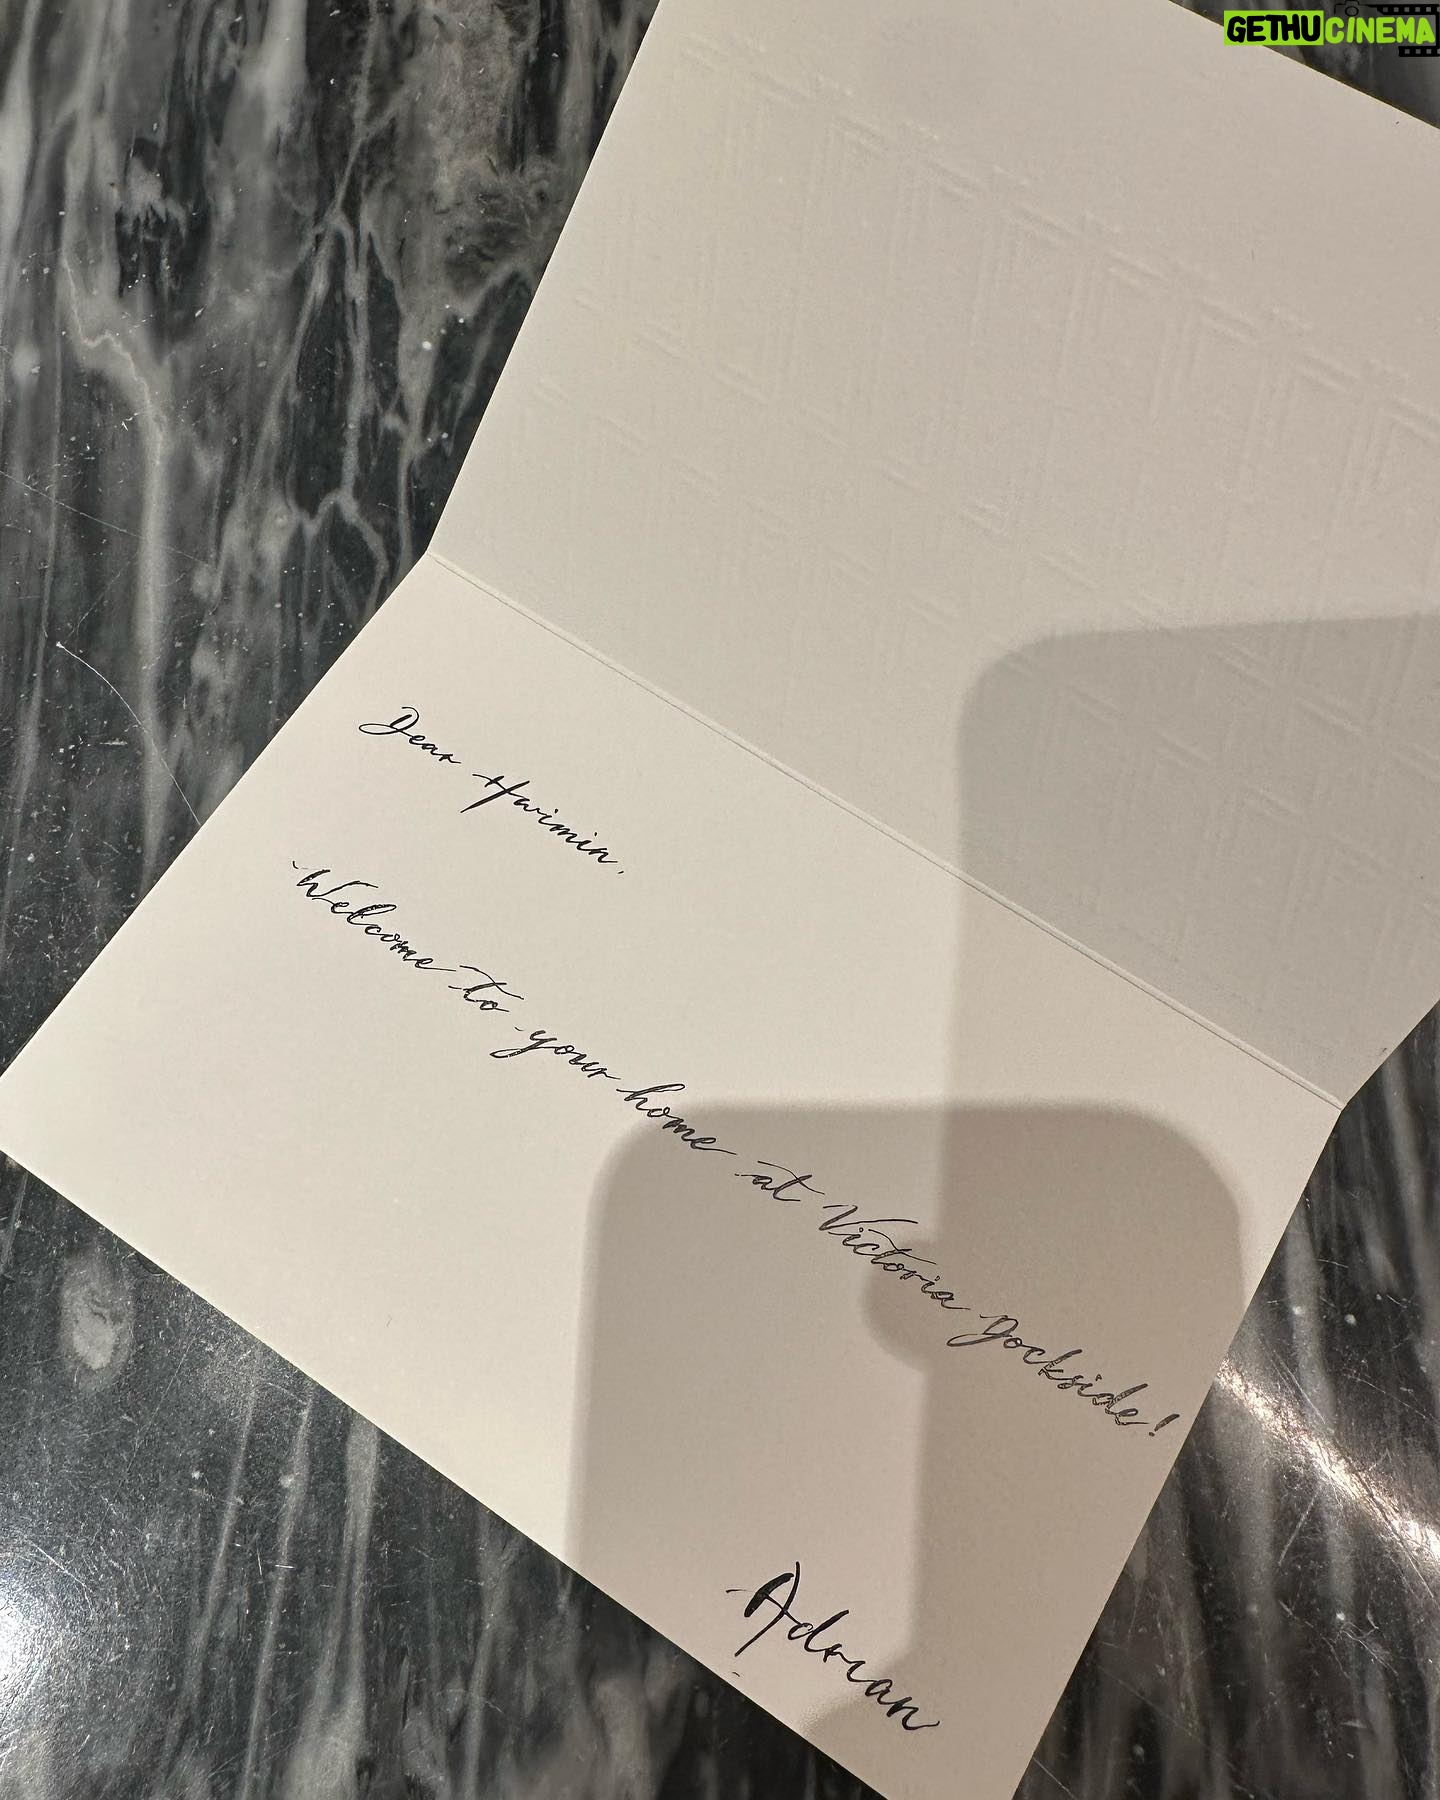 GETHUCINEMA
Dear Hwimin,
Welcome to your home at Victoria Dockside!
Adrian